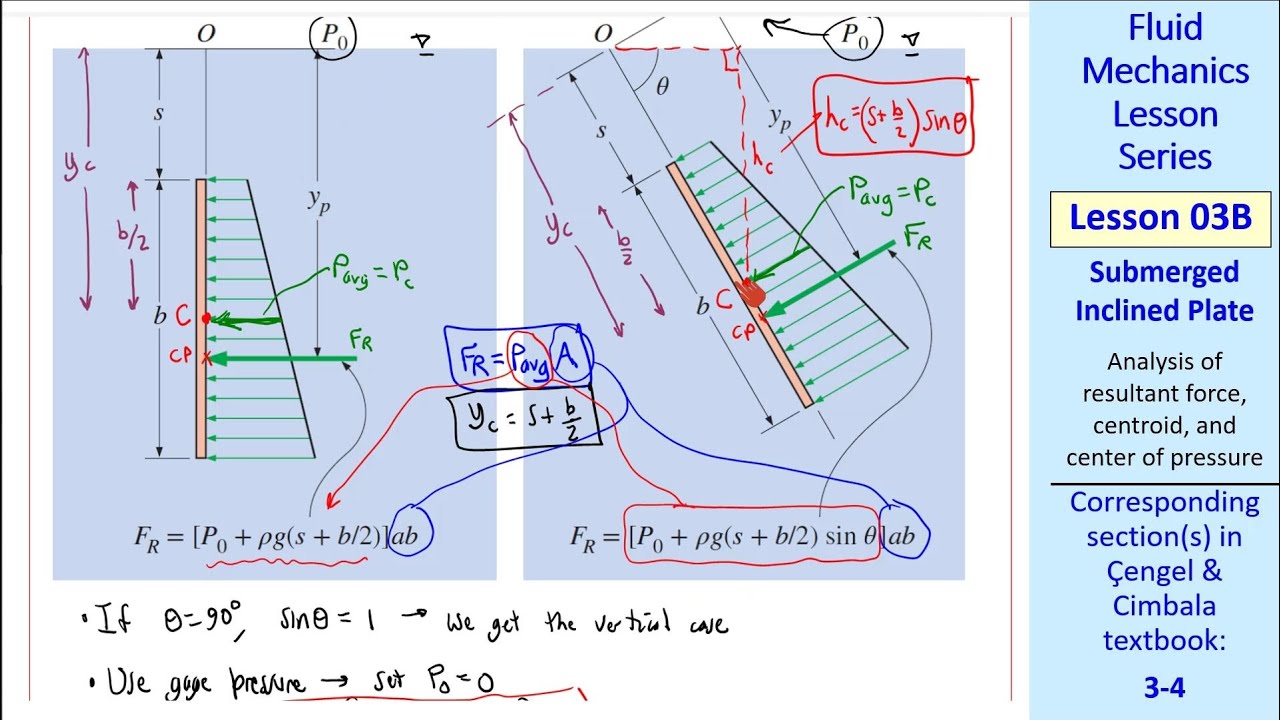 O
P₀
∇
s
y_c
b/2
y_p
P_avg = P_c
b
C
CP
F_R
F_R = [P₀ + ρg(s + b/2)]ab
F_R = P_avg A
y_c = s + b/2
O
P₀
∇
θ
s
y_p
h_c = (s + b/2) sin θ
h_c
P_avg = P_c
F_R
y_c
b/2
b
C
CP
F_R = [P₀ + ρg(s + b/2) sin θ]ab
• If θ = 90°, sin θ = 1 → we get the vertical case
• Use gage pressure → set P₀ = 0
Fluid
Mechanics
Lesson
Series
Lesson 03B
Submerged
Inclined Plate
Analysis of
resultant force,
centroid, and
center of pressure
Corresponding
section(s) in
Çengel &
Cimbala
textbook:
3-4